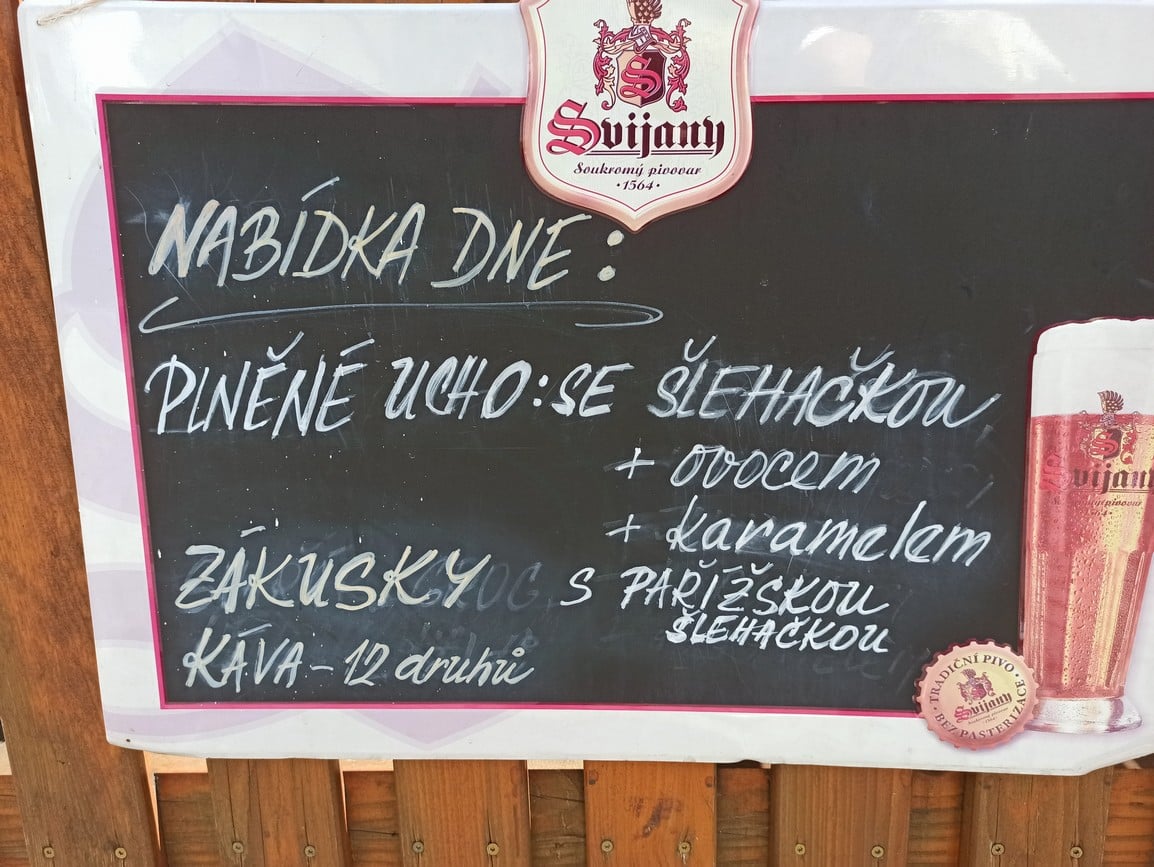 Svijany
Soukromý pivovar
·1564·
NABÍDKA DNE:
PLNĚNÉ UCHO: SE ŠLEHAČKOU
+ ovocem
+ karamelem
ZÁKUSKY S PAŘÍŽSKOU
ŠLEHAČKOU
KÁVA – 12 druhů
Svijany
TRADIČNÍ PIVO
Svijany
BEZ PASTERIZACE